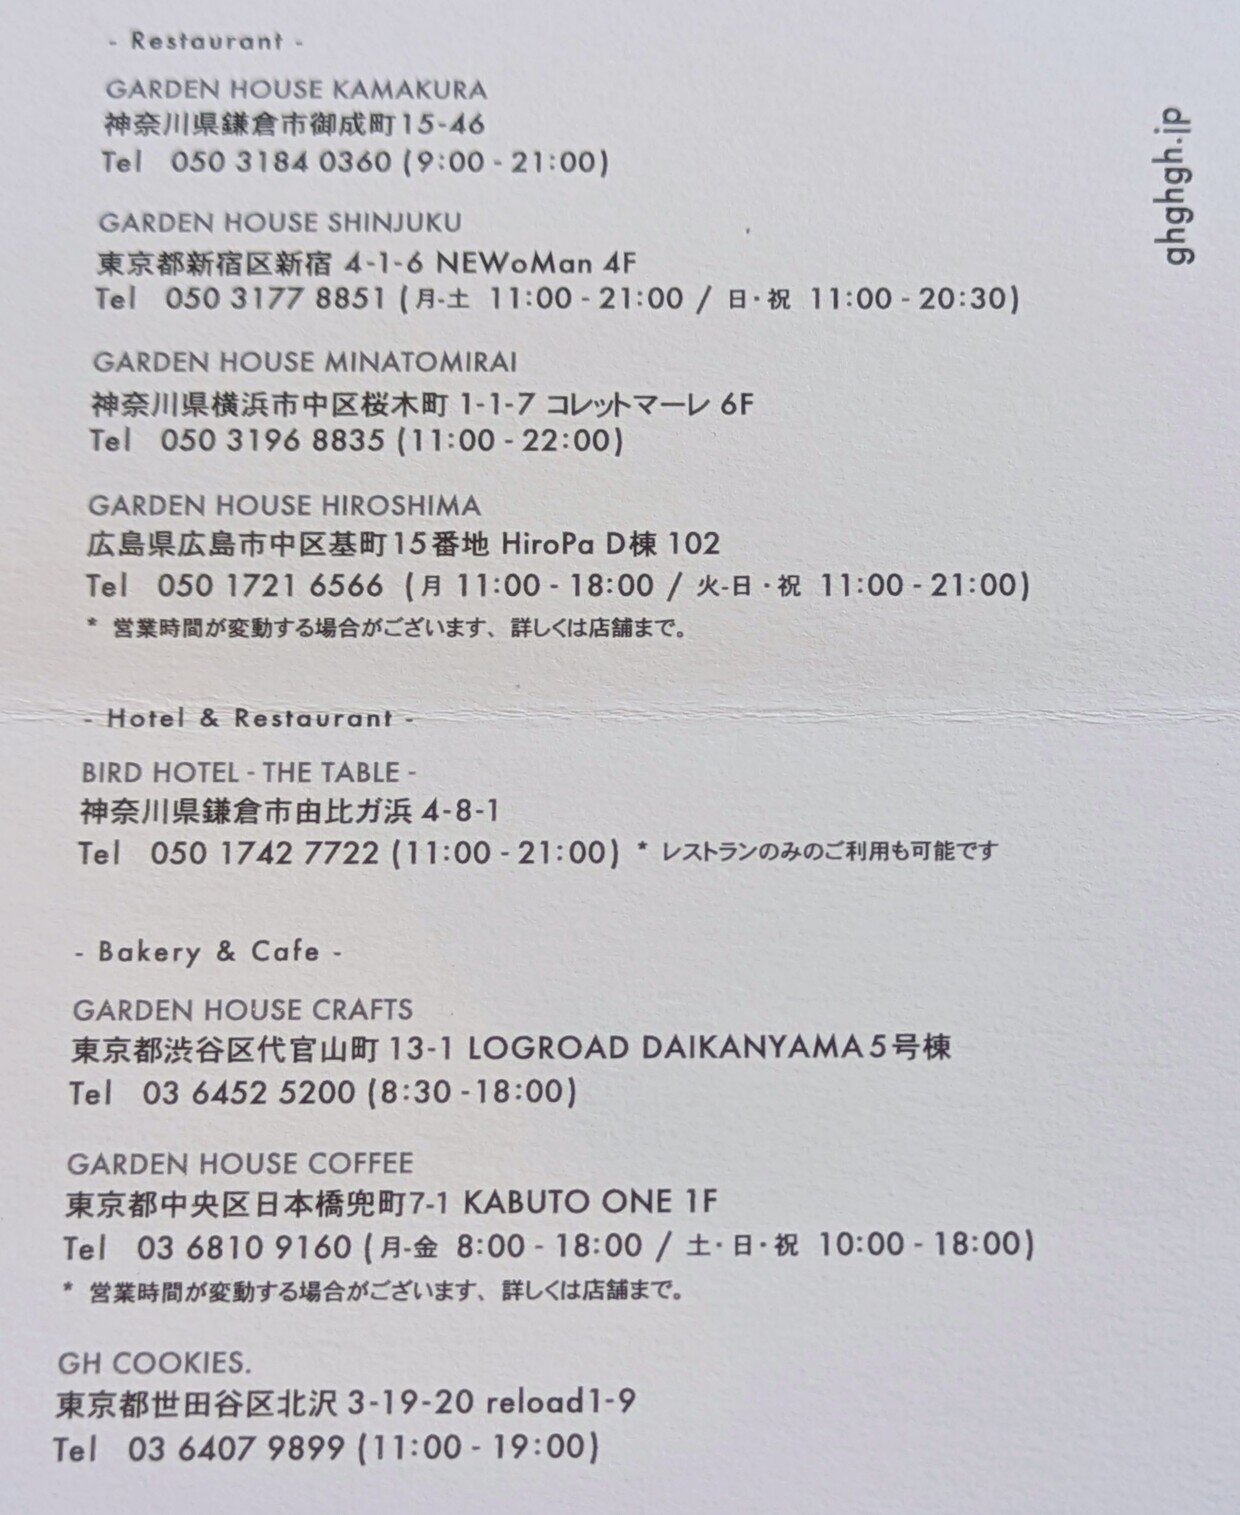 - Restaurant -
GARDEN HOUSE KAMAKURA
神奈川県鎌倉市御成町15-46
Tel 050 3184 0360 (9:00 - 21:00)
GARDEN HOUSE SHINJUKU
東京都新宿区新宿 4-1-6 NEWoMan 4F
Tel 050 3177 8851 (月-土 11:00 - 21:00 / 日・祝 11:00 - 20:30)
GARDEN HOUSE MINATOMIRAI
神奈川県横浜市中区桜木町 1-1-7 コレットマーレ 6F
Tel 050 3196 8835 (11:00 - 22:00)
GARDEN HOUSE HIROSHIMA
広島県広島市中区基町15番地 HiroPa D棟 102
Tel 050 1721 6566 (月 11:00 - 18:00 / 火-日・祝 11:00 - 21:00)
* 営業時間が変動する場合がございます、詳しくは店舗まで。
- Hotel & Restaurant -
BIRD HOTEL - THE TABLE -
神奈川県鎌倉市由比ガ浜 4-8-1
Tel 050 1742 7722 (11:00 - 21:00) * レストランのみのご利用も可能です
- Bakery & Cafe -
GARDEN HOUSE CRAFTS
東京都渋谷区代官山町 13-1 LOGROAD DAIKANYAMA 5号棟
Tel 03 6452 5200 (8:30 - 18:00)
GARDEN HOUSE COFFEE
東京都中央区日本橋兜町7-1 KABUTO ONE 1F
Tel 03 6810 9160 (月-金 8:00 - 18:00 / 土・日・祝 10:00 - 18:00)
* 営業時間が変動する場合がございます、詳しくは店舗まで。
GH COOKIES.
東京都世田谷区北沢 3-19-20 reload1-9
Tel 03 6407 9899 (11:00 - 19:00)
ghghgh.jp